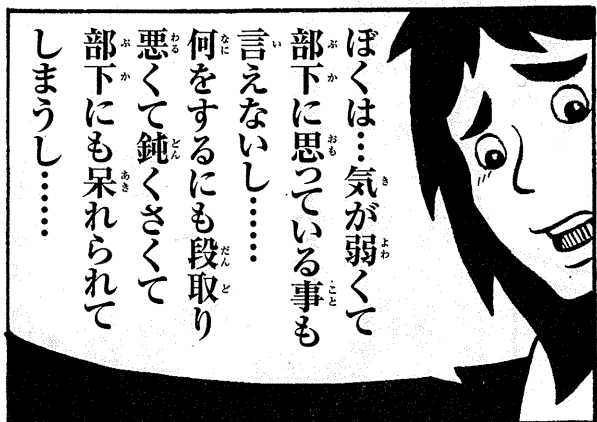 ぼくは…気が弱くて
部下に思っている事も
言えないし……
何をするにも段取り
悪くて鈍くさくて
部下にも呆れられて
しまうし……